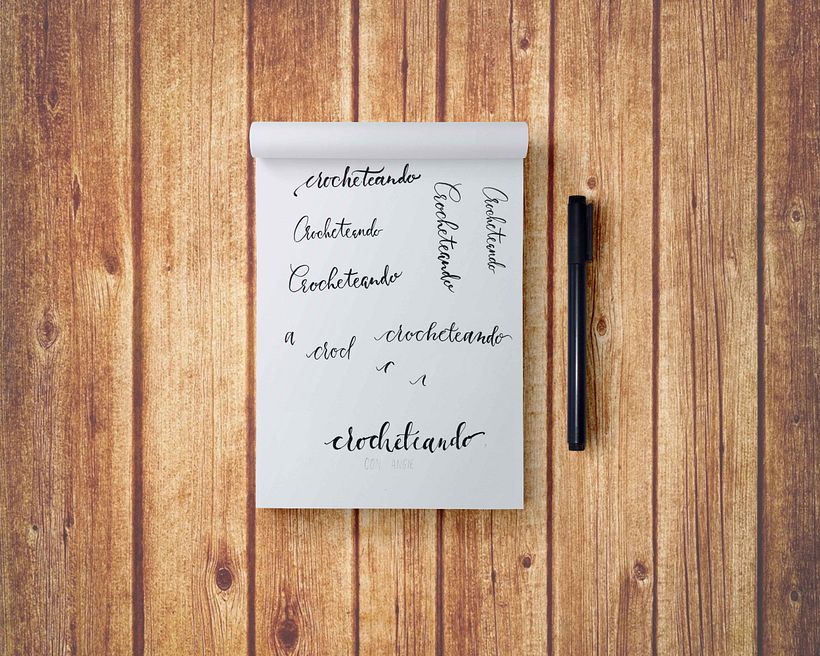 crocheteando
Crocheteando
Crocheteando
Crocheteando
Crocheteando
a
crocl
crocheteando
c
crocheteando
CON ANGIE